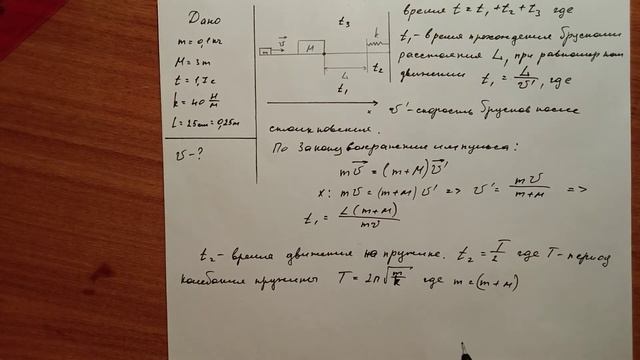 Дано
m = 0,1 кг
M = 3m
t = 1,7 c
k = 40 Н/м
L = 25см = 0,25м
v - ?
t₃
k
v⃗
m
M
L
t₂
t₁
x
время t = t₁ + t₂ + t₃ где
t₁ - время прохождения брусками
расстояния L, при равномерном
движении t₁ = L/v', где
v' - скорость брусков после
столкновения.
По Закону сохранения импульса:
mv⃗ = (m+M)v⃗'
x: mv = (m+M)v' => v' = mv/(m+M) =>
t₁ = L(m+M)/mv
t₂ - время движения на пружине. t₂ = T/2 где T - период
колебания пружины T = 2π√(m/k) где m = (m+M)